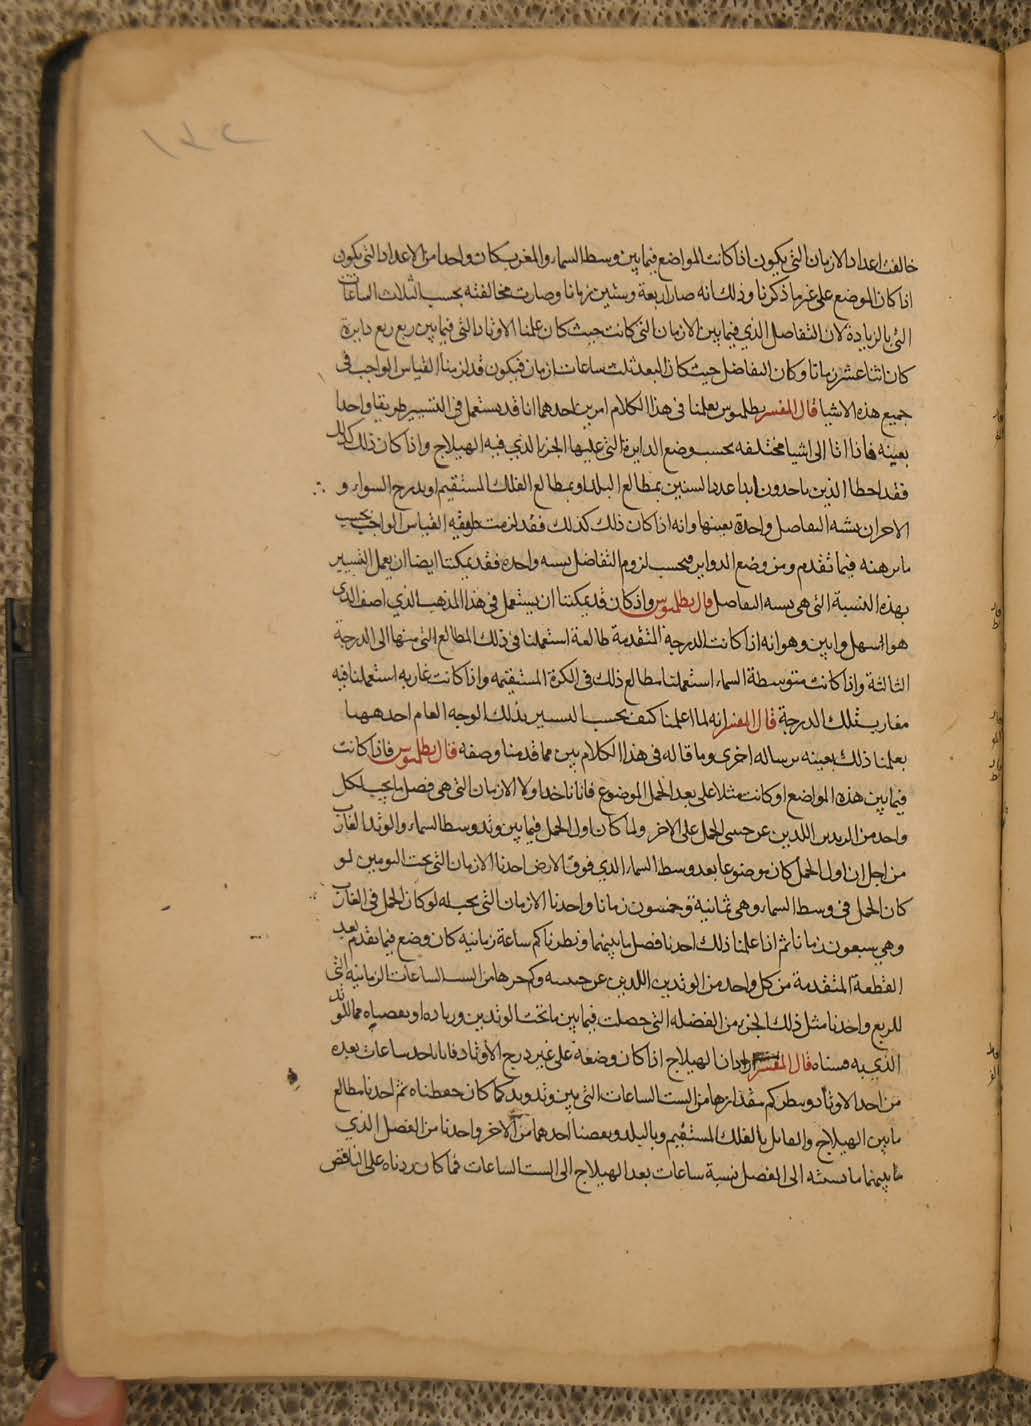 خالفت اعداد الازمان التي يكون اذا كانت المواضع فيما بين وسط السماء والمغرب كان واحدا من الاعداد التي يكون
اذا كان الموضع على غير ما ذكرنا وذلك انه صار اربعة وستين زمانا وصارت مخالفته بحسب الثلاث الساعات
التي بالزيادة لان التفاصل الذي فيما بين الازمان التي كانت حيث كان علمنا الاوتاد التي فيما بين ربع ربع دايرة
كان اثنا عشر زمانا وكان التفاضل حيث كان البعد ثلث ساعات ازمان فيكون قد لزمنا القياس الواجب في
جميع هذه الاشيا قال المفسر بطلموس يعلمنا في هذا الكلام امرين احدهما انا قد يستعمل في التسيير طريقا واحدا
بعينه فاذا اتا الى اشيا مختلفه بحسب وضع الدايرة التي عليها الجزء الذي فيه الهيلاج واذا كان ذلك كذلك
فقد اخطا الذين ياخذون ابدا عدد السنين بمطالع البلد او بمطالع الفلك المستقيم او بدرج السواء و
الاخر ان نسبه التفاصل واحدة بعينها وانه اذا كان ذلك كذلك فقد لزمت القياس الواجب بحسب
ما برهنه فيما تقدم ومن وضع الدواير وبحسب لزوم التفاضل نسبه واحدة فقد يمكننا ايضا ان يعمل التسيير
بهذه النسبة التي هي نسبه التفاصل قال بطلموس واذ كان قد يمكننا ان يستعمل في هذا المذهب الذي اصف الذي
هو اسهل وابين وهو انه اذا كانت الدرجة المتقدمة طالعة استعملنا في ذلك المطالع التي منها الى الدرجة
الثالثة واذا كانت متوسطة السماء استعملنا مطالع ذلك في الكرة المستقيمه واذا كانت غاربه استعملنا فيه
مغارب تلك الدرجة قال المفسر انه لما اعلمنا كيف بحسب التسيير بذلك الوجه العام احد ههنا
يعلمنا ذلك بعينه برساله اخرى وما قاله في هذا الكلام بين مما قدمنا وصفه قال بطلموس فاذا كانت
فيما بين هذه المواضع او كانت مثلا على بعد الحمل الموضوع فانا ناخذ اولا الازمان التي هي فصل ما يجب لكل
واحد من الوتدين اللذين عن جنبي الحمل على الاخر ولما كان اول الحمل فيما بين وتد وسط السماء والوتد الغارب
من اجل ان اول الحمل كان موضوعا بعد وسط السماء الذي فوق الارض اخذنا الازمان التي يجب لو
كان الحمل في وسط السماء وهي ثمانية وخمسون زمانا واخذنا الازمان التي يجب له لو كان الحمل في الغارب
وهي سبعون زمانا ثم اذا علمنا ذلك اخذنا فصل ما بينهما ونظرنا كم ساعة زمانيه كان وضع فيما تقدم بعد
القطعة المتقدمة من كل واحد من الوتدين اللذين عن جنبيه وكم جزها من الست الساعات الزمانيه التي
للربع واخذنا مثل ذلك الجزء من الفضله التي حصلت فيما بين ما تحت الوتدين وزياده او نقصناه مما للوتد
الذي به قسناه قال المفسر اراد ان الهيلاج اذا كان وضعه على غير درج الاوتاد فانا ناخذ ساعات بعده
من احد الاوتاد وينظر كم مقدارها من الست الساعات التي بين وتد ووتد كما كان حفظناه ثم اخذنا مطالع
ما بين الهيلاج والقابل بالفلك المستقيم وبالبلد ونقصنا احدهما من الاخر واخذنا من الفصل الذي
ما بينهما ما نسبته الى الفصل نسبة ساعات بعد الهيلاج الى الست الساعات فما كان زدناه على الناقص